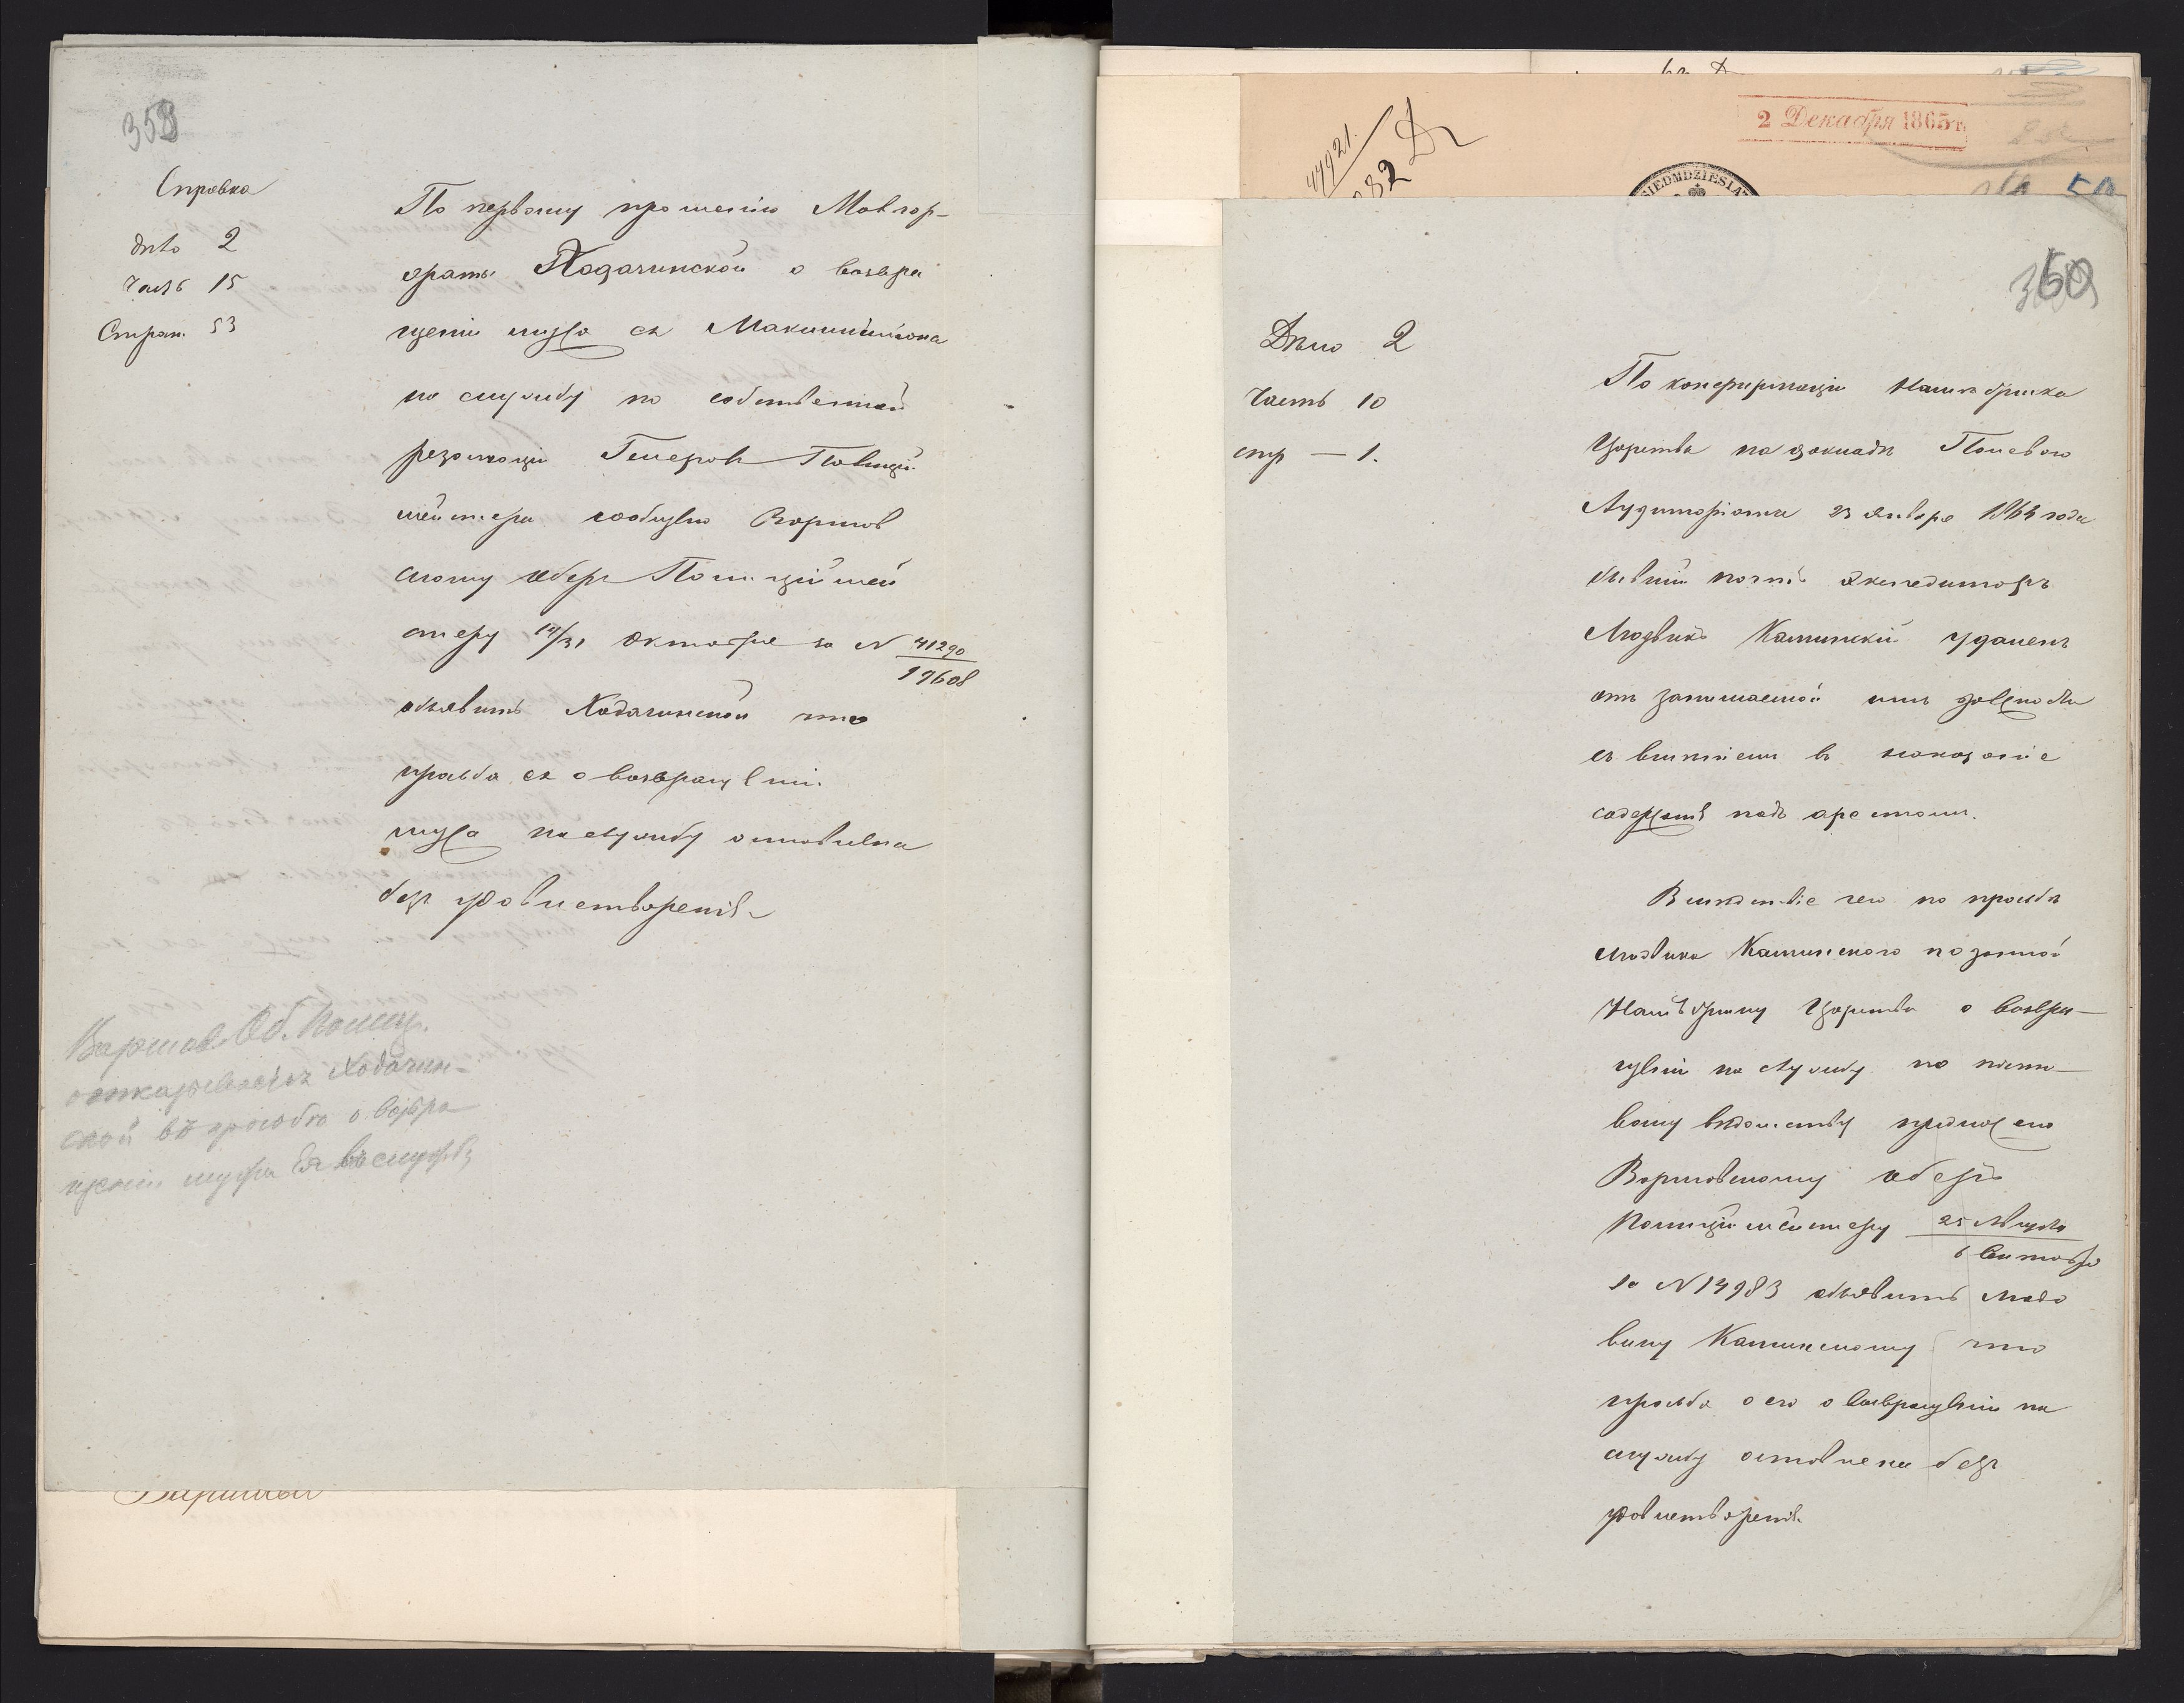 358
Справка
дѣло 2
Часть 15
Стран. 53
По первому прошенію Мавгор-
жаты Ходачинской о возвра
щеніи мужа ея Максимиліона
на службу по собственной
резолюціи Генералъ Полицій
мейстера сообщено Варшав
скому Оберъ Полиціймей
стеру 19/31 Октября за N 41290
19608
объявить Ходачинской что
просьба ея о возвращеніи
мужа на службу оставлена
безъ удовлетворенія
Варшав. Об. Полиц.
отказывается Ходачин-
ской въ просьбѣ о возвра
щеніи мужа ея въ службу
Варшавы
47921
2 Декабря 1865 г.
SIEDMDZIESIĄT
360
Дѣло 2
Часть 10
стр — 1.
По конфирмаціи Намѣстника
Царства на докладѣ Полеваго
Аудиторіата 23 Января 1864 года
бывшій почт. Экспедиторъ
Людвикъ Каминскій удаленъ
отъ занимаемой имъ должности
съ вмѣненіемъ въ наказаніе
содержанія подъ арестомъ.
Вслѣдствіе чего по просьбѣ
Людвика Каминскаго поданной
Намѣстнику Царства о возвра-
щеніи на службу по почто-
вому вѣдомству предложено
Варшавскому Оберъ
Полиціймейстеру 25 Августа
6 Сентября
за N 14983 объявить Людо
вику Каминскому что
просьба его о возвращеніи на
службу оставлена безъ
удовлетворенія.